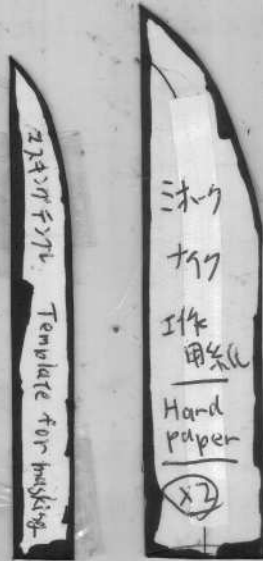 マスキングテンプレ Template for masking
ミホーク
ナイフ
工作
用紙
Hard
paper
x2